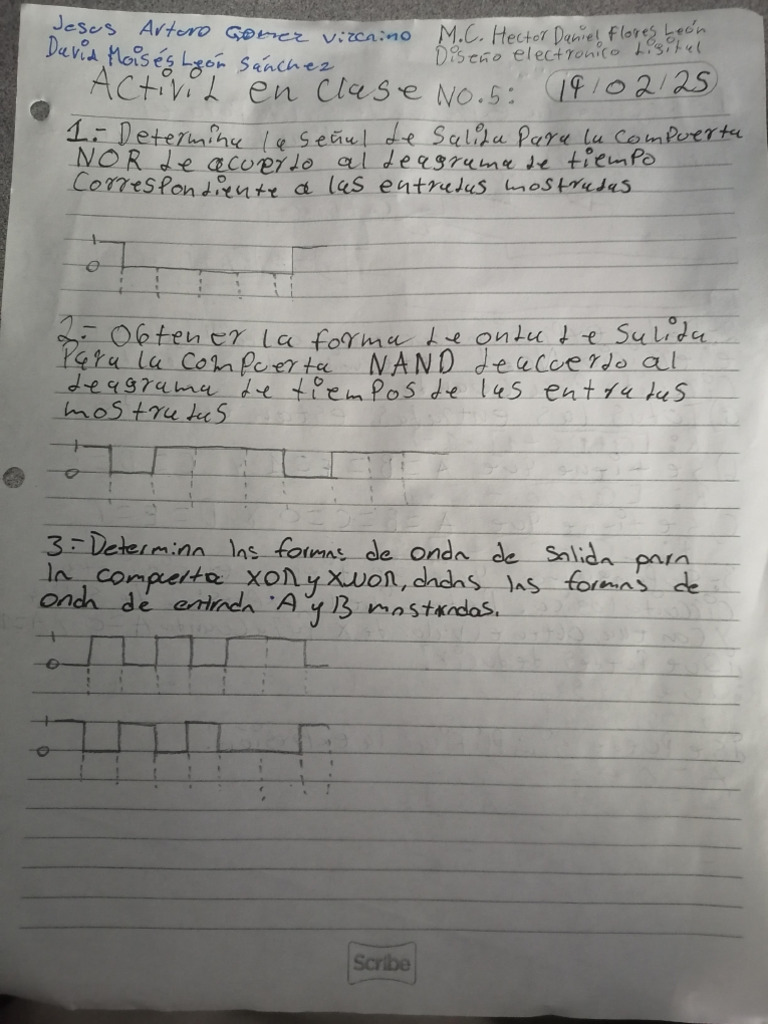 Jesus Arturo Gomez Vizcaino
M.C. Hector Daniel Flores León
David Moisés León Sánchez
Diseño electronico Digital
Activid en clase No.5: 19/02/25
1.- Determina la señal de salida para la compuerta
NOR de acuerdo al deagrama de tiempo
correspondiente a las entradas mostradas
1
0
2.- Obtener la forma de onda de salida
para la compuerta NAND de acuerdo al
deagrama de tiempos de las entradas
mostradas
1
0
3.- Determina las formas de onda de salida para
la compuerta XOR y XNOR, dadas las formas de
onda de entrada A y B mostradas.
1
0
1
0
Scribe